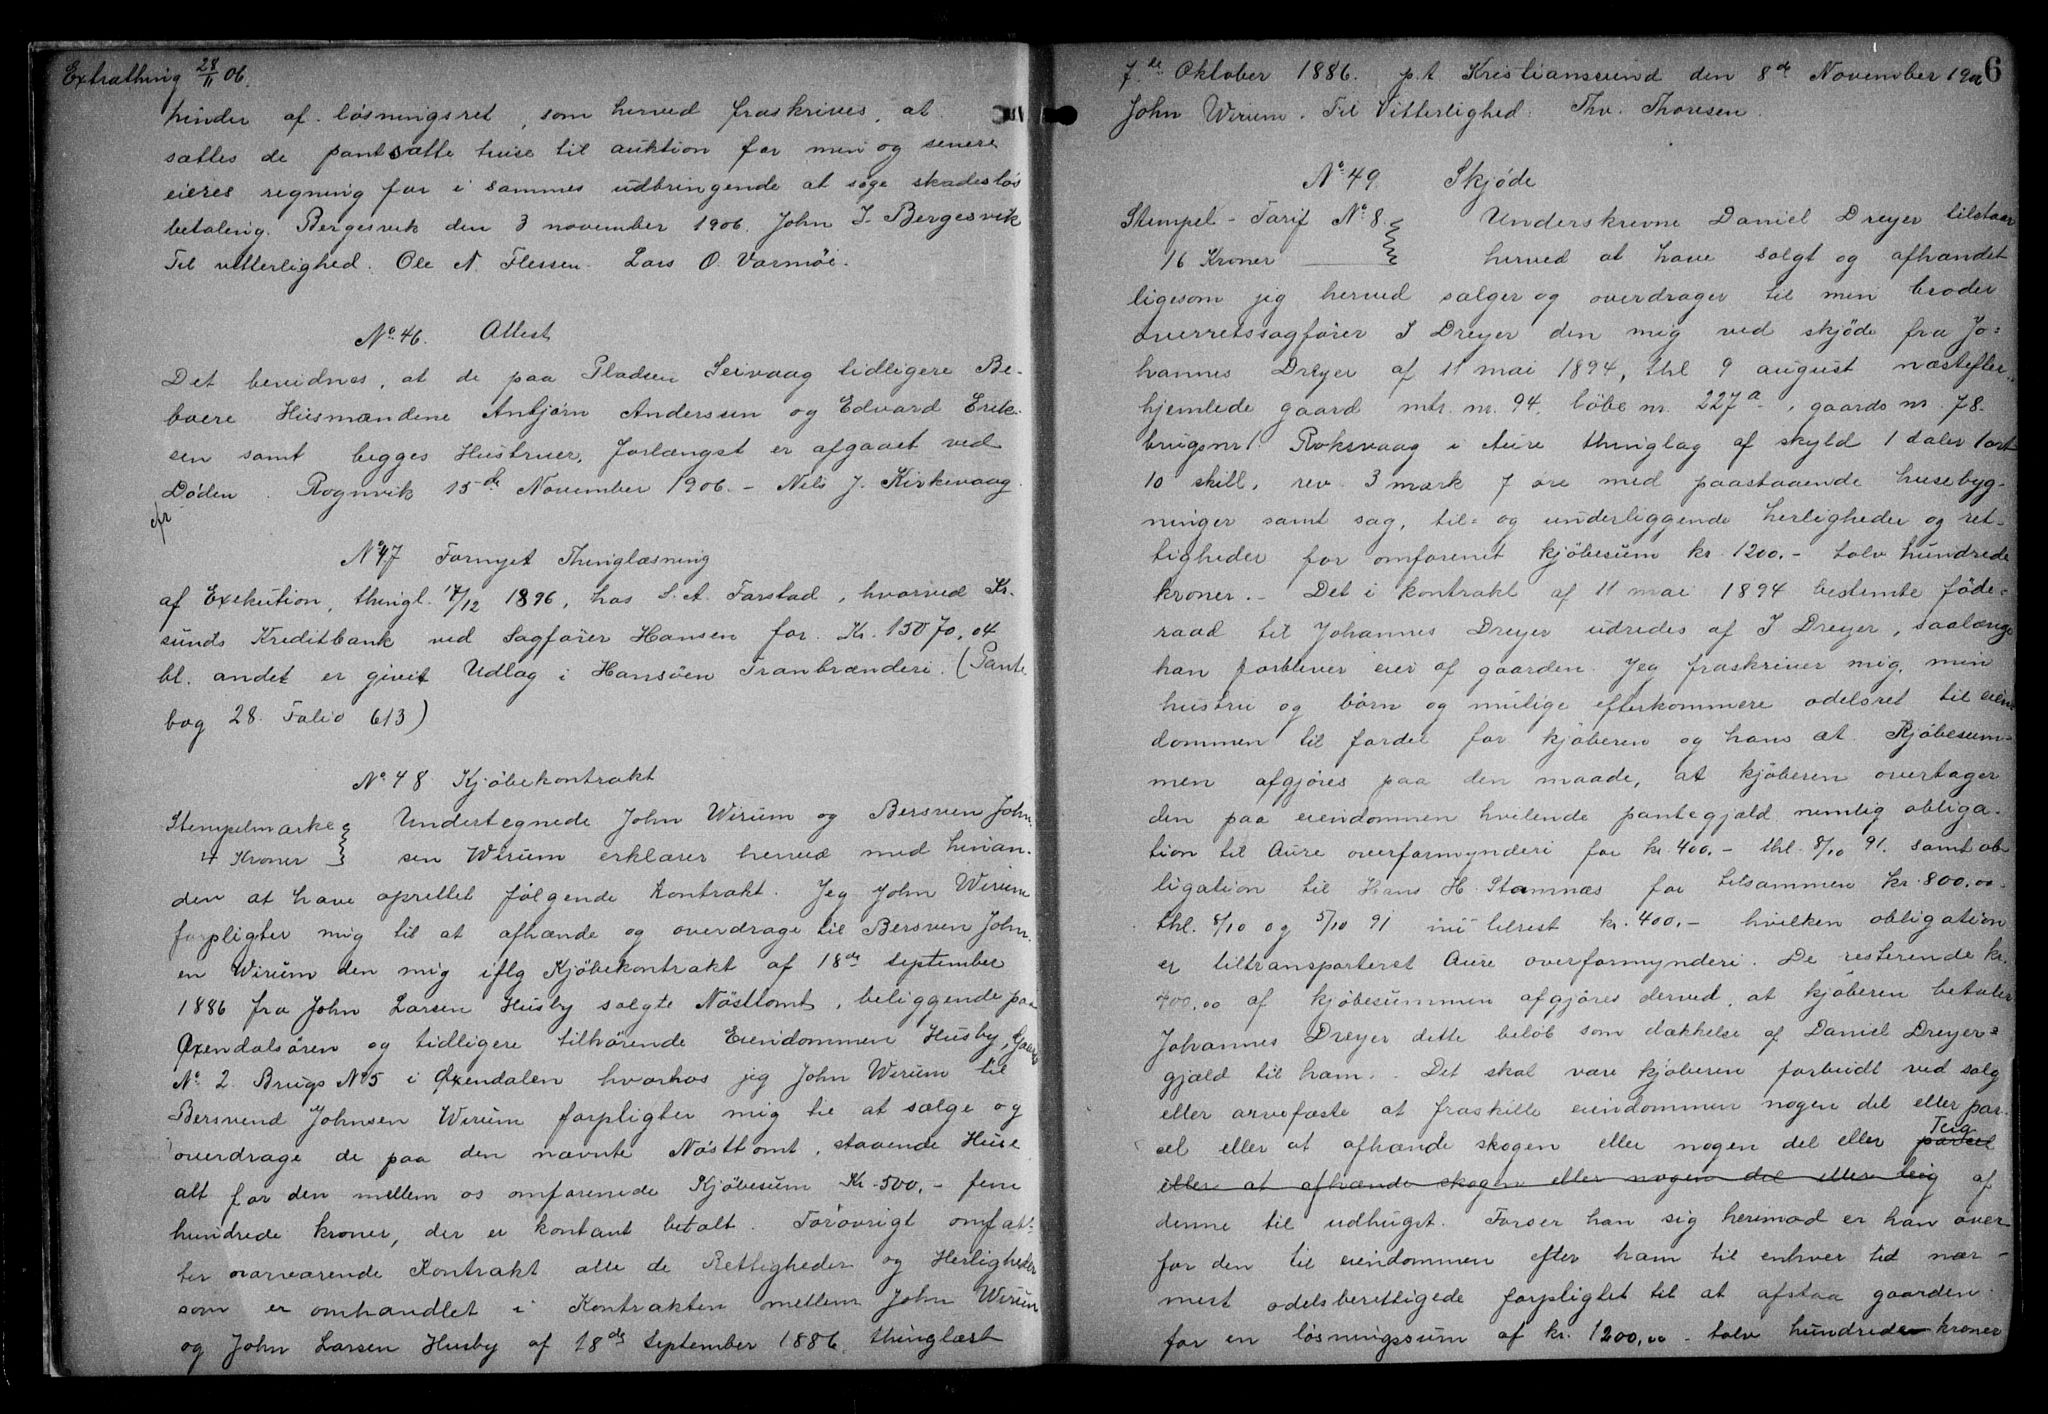 Extrathing 28/11 06.
hinder af løsningsret, som herved fraskrives, at
sættes de pantsatte huse til auktion for min og senere
eieres regning for i sammes udbringende at søge skadesløs
betaling. Bergesvik den 3 november 1906. John I. Bergesvik
Til vitterlighed. Ole N. Flessen. Lars O. Varmøi.
No. 46. Attest
Det bevidnes, at de paa Pladsen Seivaag tidligere Be-
boere Husmændene Anbjørn Anderssen og Edvard Erik-
sen samt begges Hustruer, forlængst er afgaaet ved
Døden. Rognvik 15de November 1906. - Nils J. Kirkevaag.
cfr
No 47 Fornyet Thinglæsning
af Exekution, thingl. 17/12 1896, hos S. A. Farstad, hvorved Kr.
sunds Kreditbank ved Sagfører Hansen for Kr. 15070,04
bl. andet er givet Udlæg i Hansøen Tranbrænderi. (Pante
bog 28. Folio 613)
No. 48 Kjøbekontrakt
Stempelmærke } Undertegnede John Wirum og Bersven John-
4 Kroner } sen Wirum erklærer herved med hinan-
den at have oprettet følgende Kontrakt. Jeg John Wirum
forpligter mig til at afhænde og overdrage til Bersven Johns
en Wirum den mig iflg Kjøbekontrakt af 18de september
1886 fra John Larsen Husby solgte Nøsttomt, beliggende paa
Øxendalsøren og tidligere tilhørende Eiendommen Husby, Gaards
No. 2 Brugs No 5 i Øxendalen hvorhos jeg John Wirum til
Bersvend Johnsen Wirum forpligter mig til at sælge og
overdrage de paa den nævnte Nøsttomt, staaende Huse
alt for den mellem os omforenede Kjøbesum Kr. 500,- fem
hundrede kroner, der er kontant betalt. Forøvrigt omfat-
ter nærværende Kontrakt alle de Rettigheder og Herligheder
som er omhandlet i Kontrakten mellem John Wirum
og John Larsen Husby af 18de september 1886, thinglæst
6
7de Oktober 1886. p.t Kristianssund den 8de November 1906
John Wirum. Til Vitterlighed: Thv. Thoresen.
No. 49. Skjøde
Stempel-Tarif No. 8. } Underskrevne Daniel Dreyer tilstaar
16 Kroner } herved at have solgt og afhændet
ligesom jeg herved sælger og overdrager til min broder
overretssagfører I Dreyer den mig ved skjøde fra Jo=
hannes Dreyer af 11 mai 1894, thl 9 august næstefter
hjemlede gaard mtr. nr. 94, løbe nr. 227a, gaards nr. 78.
brugsnr 1 Roksvaag i Aure thinglag af skyld 1 daler 1 ort
10 skill, rev. 3 mark 7 øre med paastaaende husebyg-
ninger samt sag, til- og underliggende herligheder og ret-
tigheder for omforenet kjøbesum kr. 1200.- tolv hundrede
kroner. - Det i kontrakt af 11 mai 1894 bestemte føde-
raad til Johannes Dreyer udredes af I Dreyer, saalænge
han forbliver eier af gaarden. Jeg fraskriver mig, min
hustru og børn og mulige efterkommere odelsret til eien
dommen til fordel for kjøberen og hans æt. Kjøbesum-
men afgjøres paa den maade, at kjøberen overtager
den paa eiendommen hvilende pantegjæld nemlig obliga-
tion til Aure overformynderi for kr. 400.- thl. 8/10 91. samt ob
ligation til Hans H. Stamnæs for tilsammen kr. 800.00.
thl. 8/10 og 5/10 91 nu tilrest kr. 400.- hvilken obligation
er tiltransporteret Aure overformynderi. De resterende kr.
400.00 af kjøbesummen afgjøres derved, at kjøberen betaler
Johannes Dreyer dette beløb som dækkelse af Daniel Dreyer=
gjæld til ham. Det skal være kjøberen forbudt ved salg
eller arvefæste at fraskille eiendommen nogen del eller par-
cel eller at afhænde skogen eller nogen del eller parcel Teig
eller at afhænde skogen eller nogen del eller teig af
denne til udhugst. Forser han sig herimod er han over
for den til eiendommen efter ham til enhver tid nær-
mest odelsberettigede forpligtet til at afstaa gaarden
for en løsningssum af kr. 1200.00 - tolv hundrede kroner